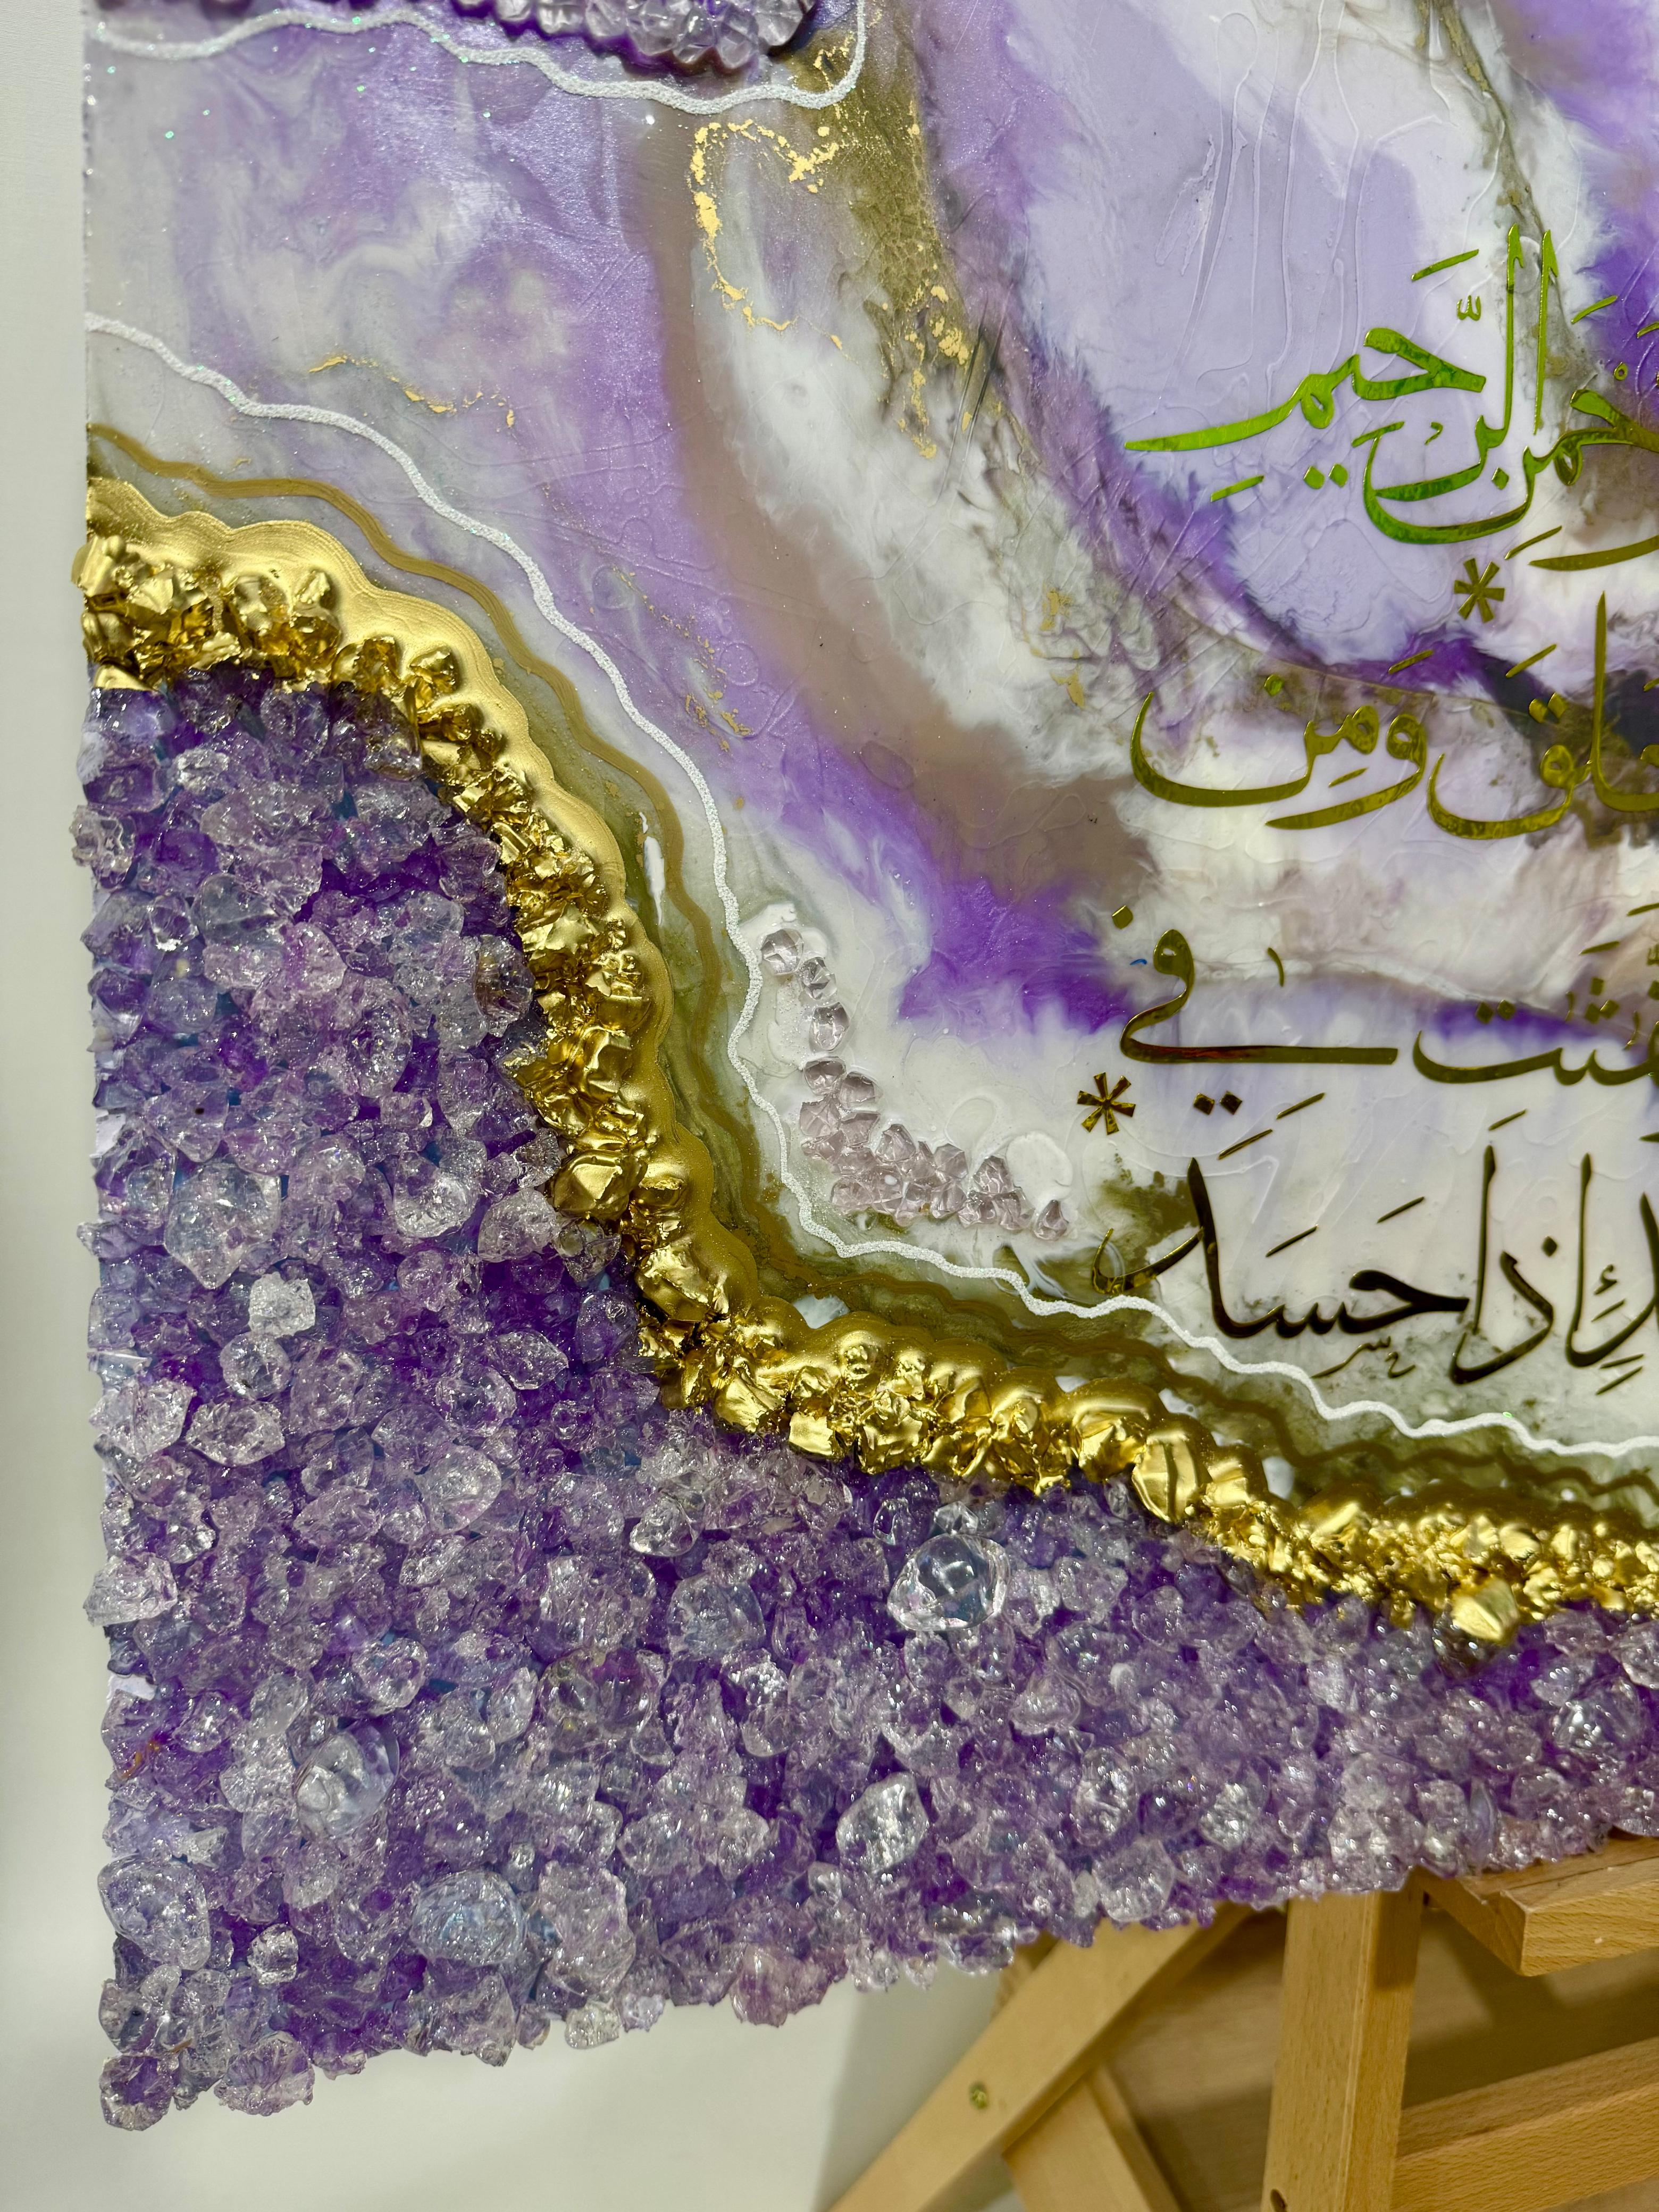 حْمَنِ الرَّحِيمِ
لَقَ * وَمِن
فَّٰثَٰتِ فِي
إِذَا حَسَدَ *